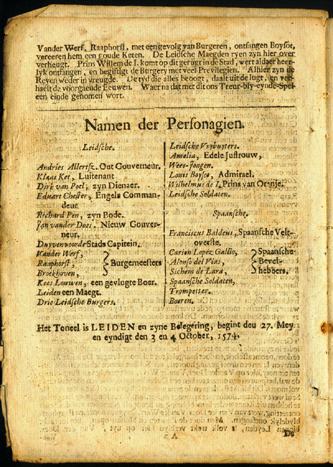 Vander Werf, Raaphorst, met een gevolg van Burgeren, ontfangen Boysot,
vereeren hem een goude Keten. De Leidsche Maegden ryen zyn hier over
verheugt. Prins Willem de I. komt op dit gerugt in de Stad, wert aldaer heer-
lyk ontfangen, en begiftigt de Burgery met veel Previlegien. Alhier zyn de
Reyen weder in vreugde. De tyd die alles beoogt, daalt uit de lugt, en ver-
haelt de voorgaende Eeuwen. Waer na dat met dit ons Treur-bly-eynde-Spel
een einde genomen wort.
Namen der Personagien.
Leidsche.
Andries Allertsz. Out Gouverneur.
Klaas Ket, Luitenant
Dirk van Poel, zyn Dienaer.
Eduart Chester, Engels Comman-
deur.
Richard Pen, zyn Bode.
Jan vander Does, Nieuw Gouver-
neur.
Duyvenvoorde Stads Capitein.
Vander Werf,
Raaphorst
Broekhoven,
Burgemeesters
Kees Leeuwen, een gevlogte Boer.
Leiden een Maegt.
Drie Leidsche Burgers.
Leidsche Vrybuyters.
Amelia, Edele Juffrouw,
Wees-Jongen.
Louis Boysot, Admirael,
Wilhelmus de I. Prins van Oranje.
Leidsche Soldaten.
Spaansche.
Franciscus Baldeus, Spaansche Velt-
overste.
Carion Lopes Gallio,
Alonso del Vias,
Sichem de Lara,
Spaansche
Bevel-
hebbers.
Spaansche Soldaten,
Trompetter.
Boeren.
Het Toneel is LEIDEN en zyne Belegering, begint den 27. Mey
en eyndigt den 3 en 4 October, 1574.